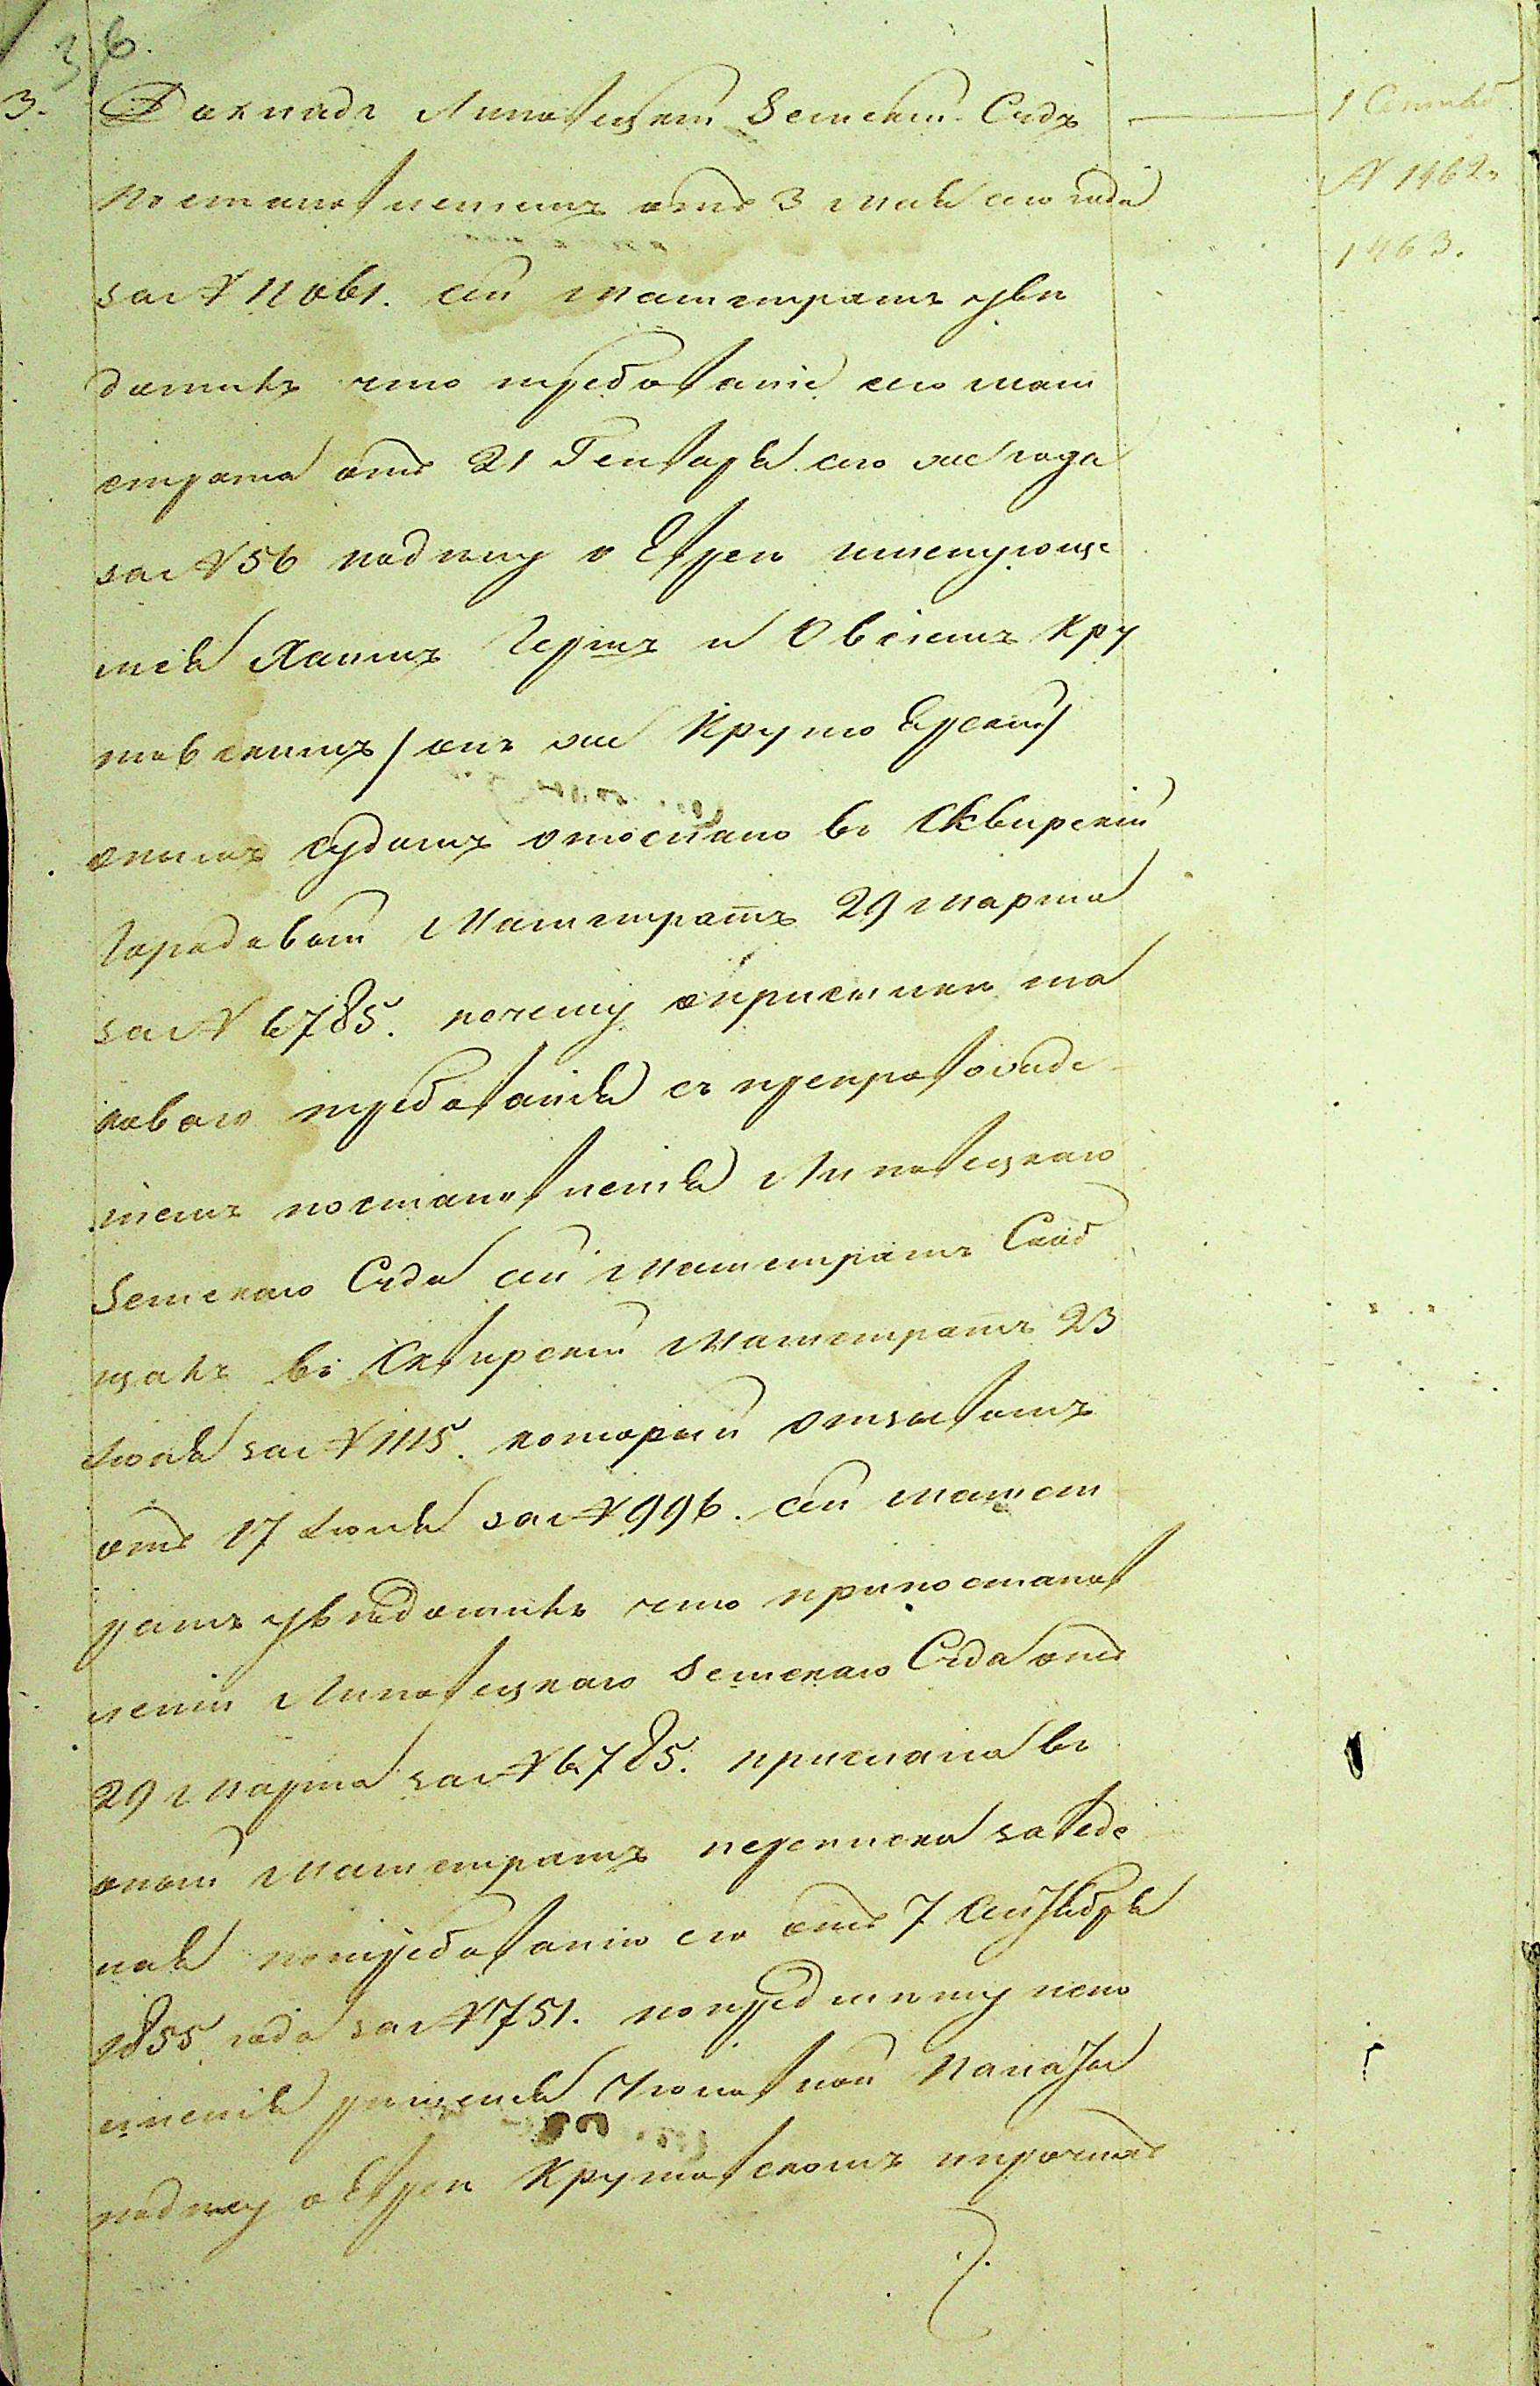 36.
3. Докладъ Липовецкій Земскій Судъ
1 Сентяб
постановленіемъ отъ 3 мая сего года
№ 1462.
1463.
за № 11061. сей магистратъ уве
домилъ что требованіе сего маги
страта отъ 21 Генваря сего же года
за № 56 по делу о Еврею именующе
мся Хаимъ Герш и Овсіемъ Кру
товскимъ / онъ же Крутоярскій /
онымъ судомъ отослано въ Сквирскій
Городовой Магистратъ 29 марта
за № 6785. почему оприсылки та
коваго требованія съ препровожде
ніемъ постановленія Липовецкаго
Земскаго Суда сей магистратъ Сооб
щалъ въ Сквирскій Магистратъ 23
Іюня за № 1115. который отзывомъ
отъ 17 Іюля за № 996. сей магист
ратъ уведомилъ что при постанов
леніи Липовецкаго Земскаго Суда отъ
29 Марта за № 6785. прислана въ
оный Магистратъ переписка заведе
ная по требованію его отъ 7 Сентября
1855 года за № 751. по предмету испо
лненія решенія Уголовной Палаты
по делу о Евреи Крутовскомъ и прочихъ